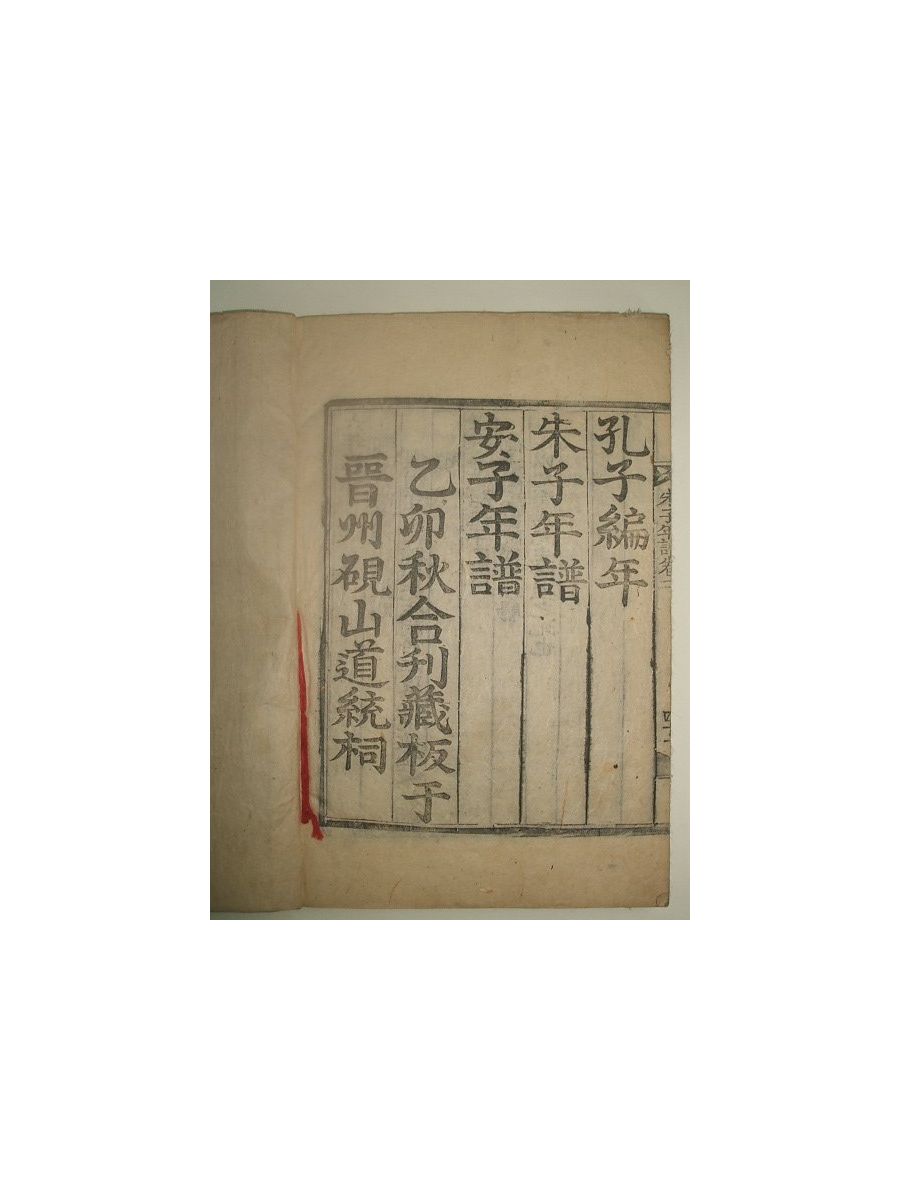 孔子編年
朱子年譜
安子年譜
乙卯秋合刋藏板于
晉州硯山道統祠
朱子年譜卷